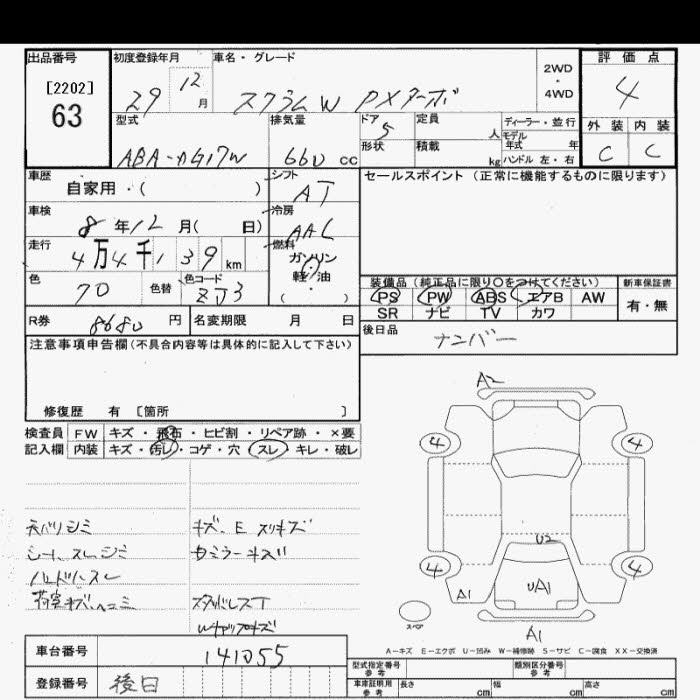 出品番号
[2202]
63
初度登録年月
29 12月
車名・グレード
スクラムW PXターボ
2WD
・
4WD
評価点
4
外装 内装
C C
型式
ABA-DG17W
排気量
660 cc
ドア 5
形状
定員 人
積載 kg
ディーラー・並行
モデル年式 年
ハンドル 左・右
車歴
自家用・( )
シフト
AT
車検
8年12月( 日)
冷房
AAC
走行
4万4千139km
燃料
ガソリン
軽・油
( ・ )
色
70
色替
色コード
ZJ3
R券 8680円
名変期限 月 日
セールスポイント (正常に機能するものに限ります)
装備品 (純正品に限り○をつけてください)
PS PW ABS エアB AW
SR ナビ TV カワ
新車保証書
有・無
後日品
ナンバー
注意事項申告欄(不具合内容等は具体的に記入して下さい)
修復歴 有 [箇所 ]
検査員 FW キズ・飛石・ヒビ割・リペア跡・×要
記入欄 内装 キズ・汚レ・コゲ・穴・スレ・キレ・破レ
天バリシミ
シート、スレ、シミ
ハンドルスレ
荷室キズ、ヘコミ
キズ、E スリキズ
スタッドレスT
Wキャップキズ
A2
4 4
4 4
U2
UA1
A1
A1
スペア
A-キズ E-エクボ U-凹み W-補修跡 S-サビ C-腐食 XX-交換済
車台番号
141055
登録番号
後日
型式指定番号
参考
類別区分番号
参考
車庫証明用
参考
長さ cm
幅 cm
高さ cm